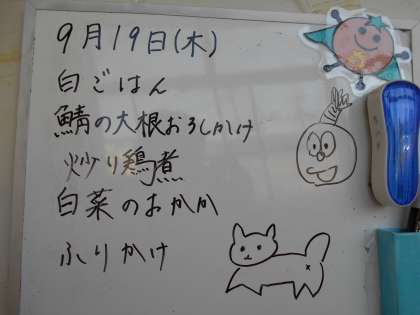 9月19日(木)
白ごはん
鯖の大根おろしかけ
炒り鶏煮
白菜のおかか
ふりかけ